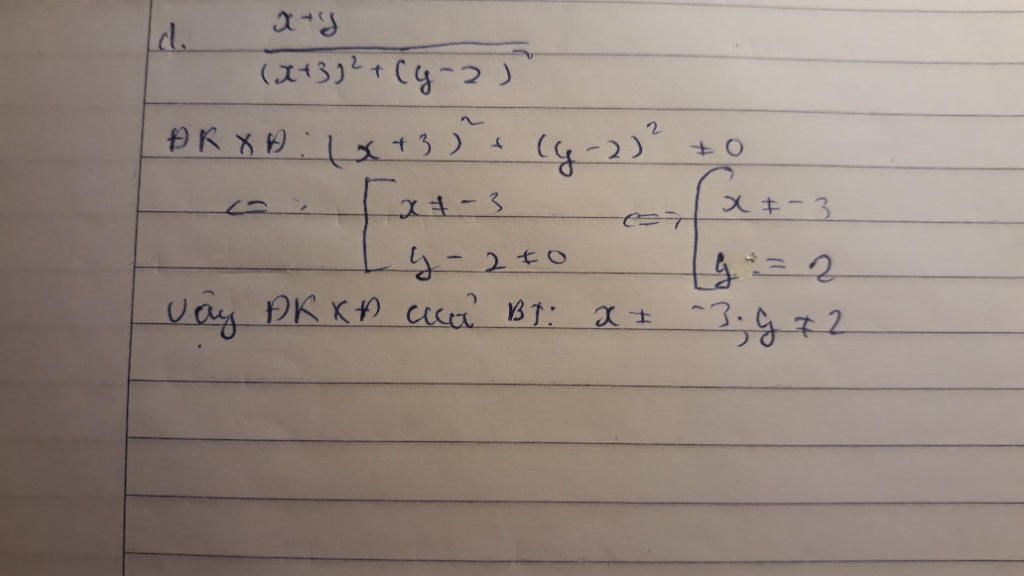 d. x+y
(x+3)² + (y-2)²
ĐKXĐ: (x+3)² + (y-2)² ≠ 0
<=> [ x ≠ -3 <=> [ x ≠ -3
y - 2 ≠ 0 y = 2
Vậy ĐKXĐ của BT: x ≠ -3; y ≠ 2